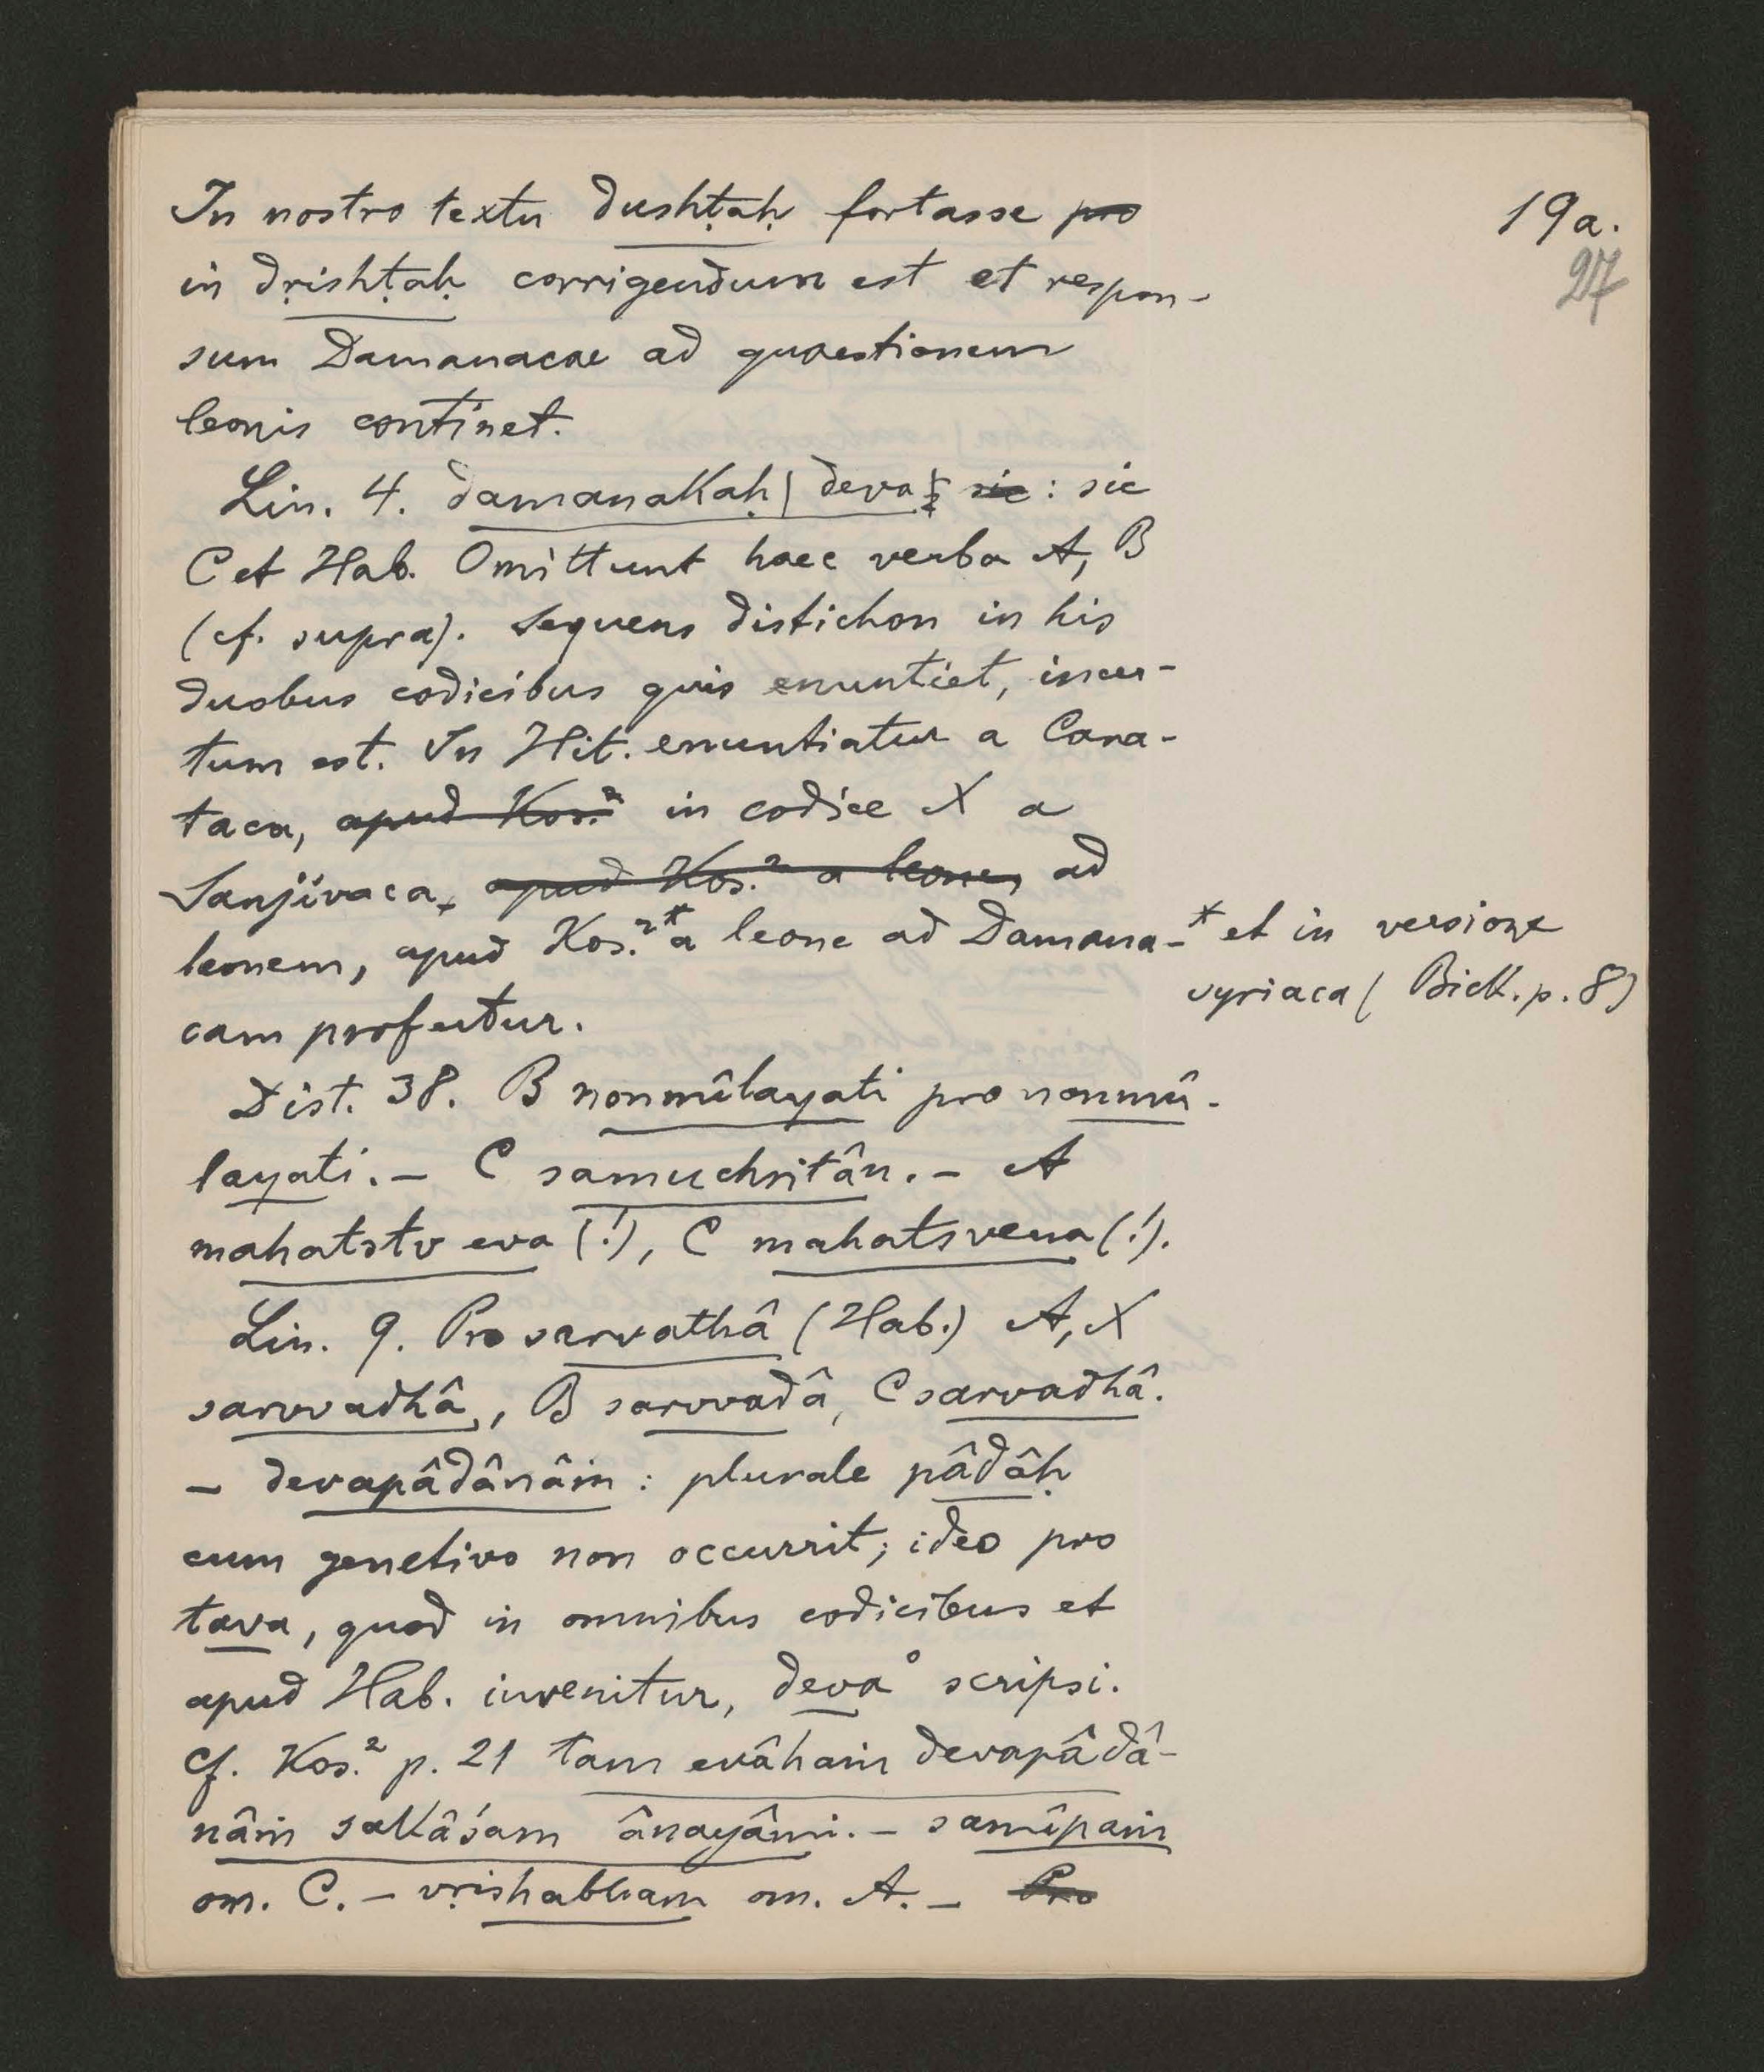 19a.
27
In nostro textu dushṭaḥ fortasse pro
in dṛishṭaḥ corrigendum est et respon-
sum Damanacae ad quaestionem
leonis continet.
Lin. 4. damanakaḥ | deva sic : sic
C et Hab. Omittunt haec verba A, B
(cf. supra). Sequens distichon in his
duobus codicibus quis enuntiet, incer-
tum est. In Hit. enuntiatur a Cara-
taca, apud Kos.² in codice X a
Sanjívaca, apud Kos.² a leone, ad
leonem, apud Kos.²* a leone ad Damana-
* et in versione
syriaca (Bick. p. 8)
cam profertur.
Dist. 38. B nonmîlayati pro nonmû-
layati. – C samuchritân. – A
mahatstv eva (!), C mahatsvena (!).
Lin. 9. Pro sarvathâ (Hab.) A, X
sarvvadhâ, B sarvvadâ, C sarvadhâ.
– devapâdânâṁ : plurale pâdâḥ
cum genetivo non occurrit; ideo pro
tava, quod in omnibus codicibus et
apud Hab. invenitur, deva° scripsi.
Cf. Kos.² p. 21 tam evâhaṁ devapâdâ-
nâṁ sakâśam ânayâmi. – samîpaṁ
om. C. – vṛishabham om. A. – Pro